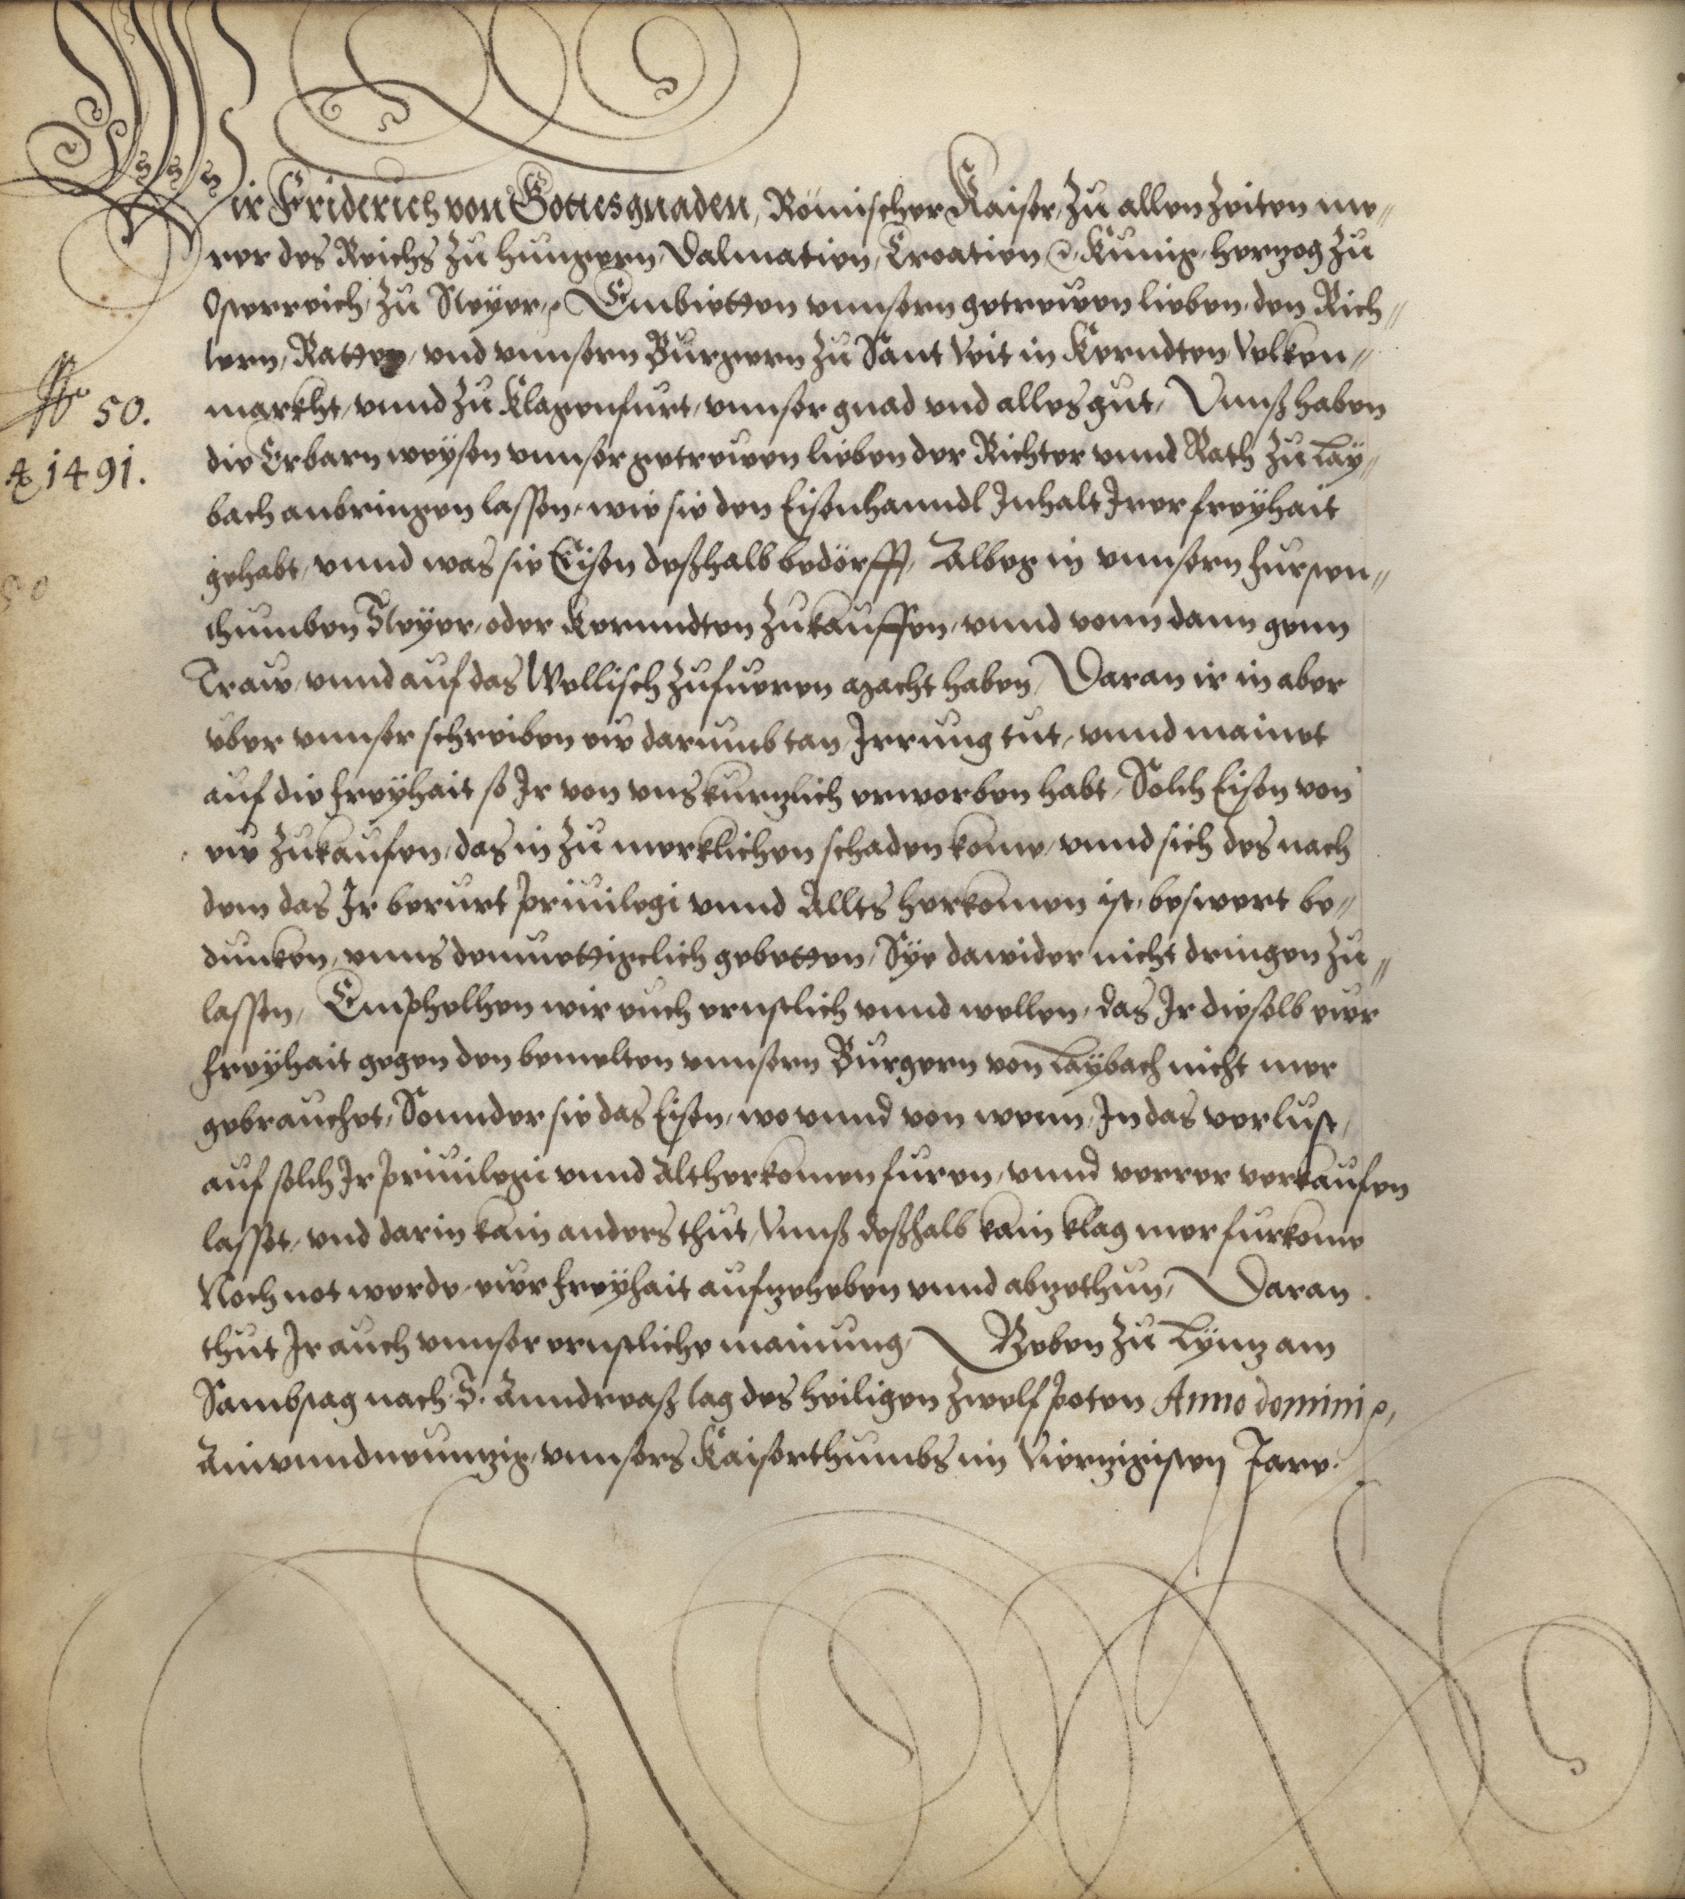 Wir Friderich von Gottes gnaden, Römischer Kaiser, Zu allen Zeiten me//
rer des Reichs Zu Hungern, Dalmatien, Croatien &, Kunig, Herzog Zu
Osterreich, Zu Steyer, & Embietten vnnsern getrewen lieben, den Rich//
tern, Ratten, vnd vnnsern Burgern Zu Sant Veit in Kerndten, Volken//
markht, vnnd Zu Klagenfurt, vnnser gnad vnd alles gut, Vnnß haben
No 50.
die Erbarn weysen vnnser getrewen lieben der Richter vnnd Rath Zu Lay//
Ao 1491.
bach anbringen lassen, wie sie den Eisenhanndl Inhalt Irer freyhait
gehabt, vnnd was sie Eisen deßhalb bedörfft, Albeg in vnnsern fursten//
50
thumben Steyer, oder Kernndten Zukauffen, vnnd vonn dann genn
Traw, vnnd auf das Wellisch Zufueren gacht haben, Daran ir in aber
vber vnnser schreiben ew darumb tan, Irrung tut, vnnd mainet
auf die freyhait so Ir von vns kurzlich erworben habt, Solch Eisen von
ew Zukaufen, das in Zu merklichen schaden kome, vnnd sich des nach
dem das Ir berurt priuilegi vnnd Allts herkomen ist, beswert be//
dunken, vnns demuettigclich gebetten, Sye dawider nicht dringen Zu//
lassen, Emphelhen wir euch ernstlich vnnd wellen, das Ir dieselb ewr
freyhait gegen den bemelten vnnsern Burgern von Laybach nicht mer
gebrauchet, Sonnder sie das Eisen, wo vnnd von wenn, In das verlust,
auf solch Ir priuilegii vnnd Altherkomen furen, vnnd verrer verkaufen
lasset, vnd darin kain anders thut, Vnnß deßhalb kain klag mer furkome
Noch not werde, ewr freyhait aufzeheben vnnd abzethun, Daran
thut Ir auch vnnser ernstliche mainung, Geben Zu Lynnz am
Sambstag nach S. Anndreaß tag des heiligen Zwelfpoten Anno domini &,
Ainvnndneunzig, vnnsers Kaiserthumbs im Vierzigisten Jare.